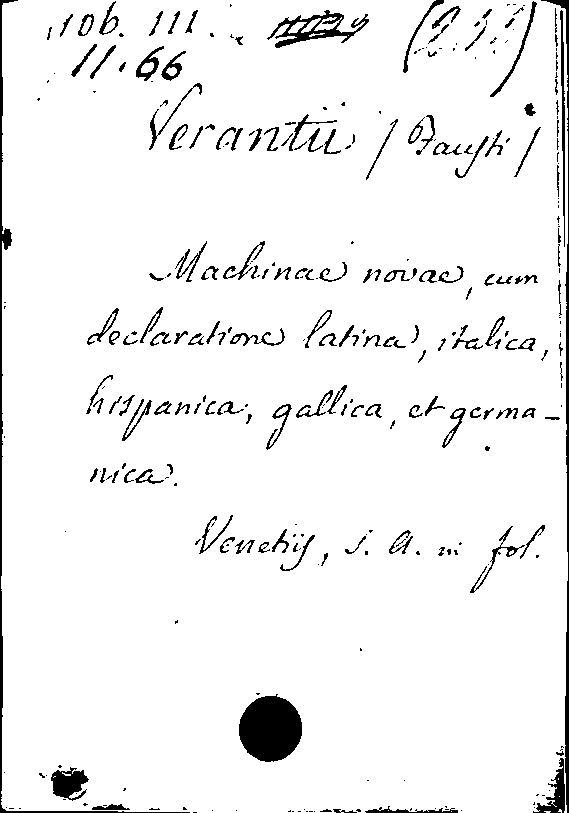 106. III.
11.66
Verantii / Fausti /
Machinae novae, cum
declaratione latina, italica,
hispanica, gallica, et germa-
nica.
Venetiis, s. A. in fol.